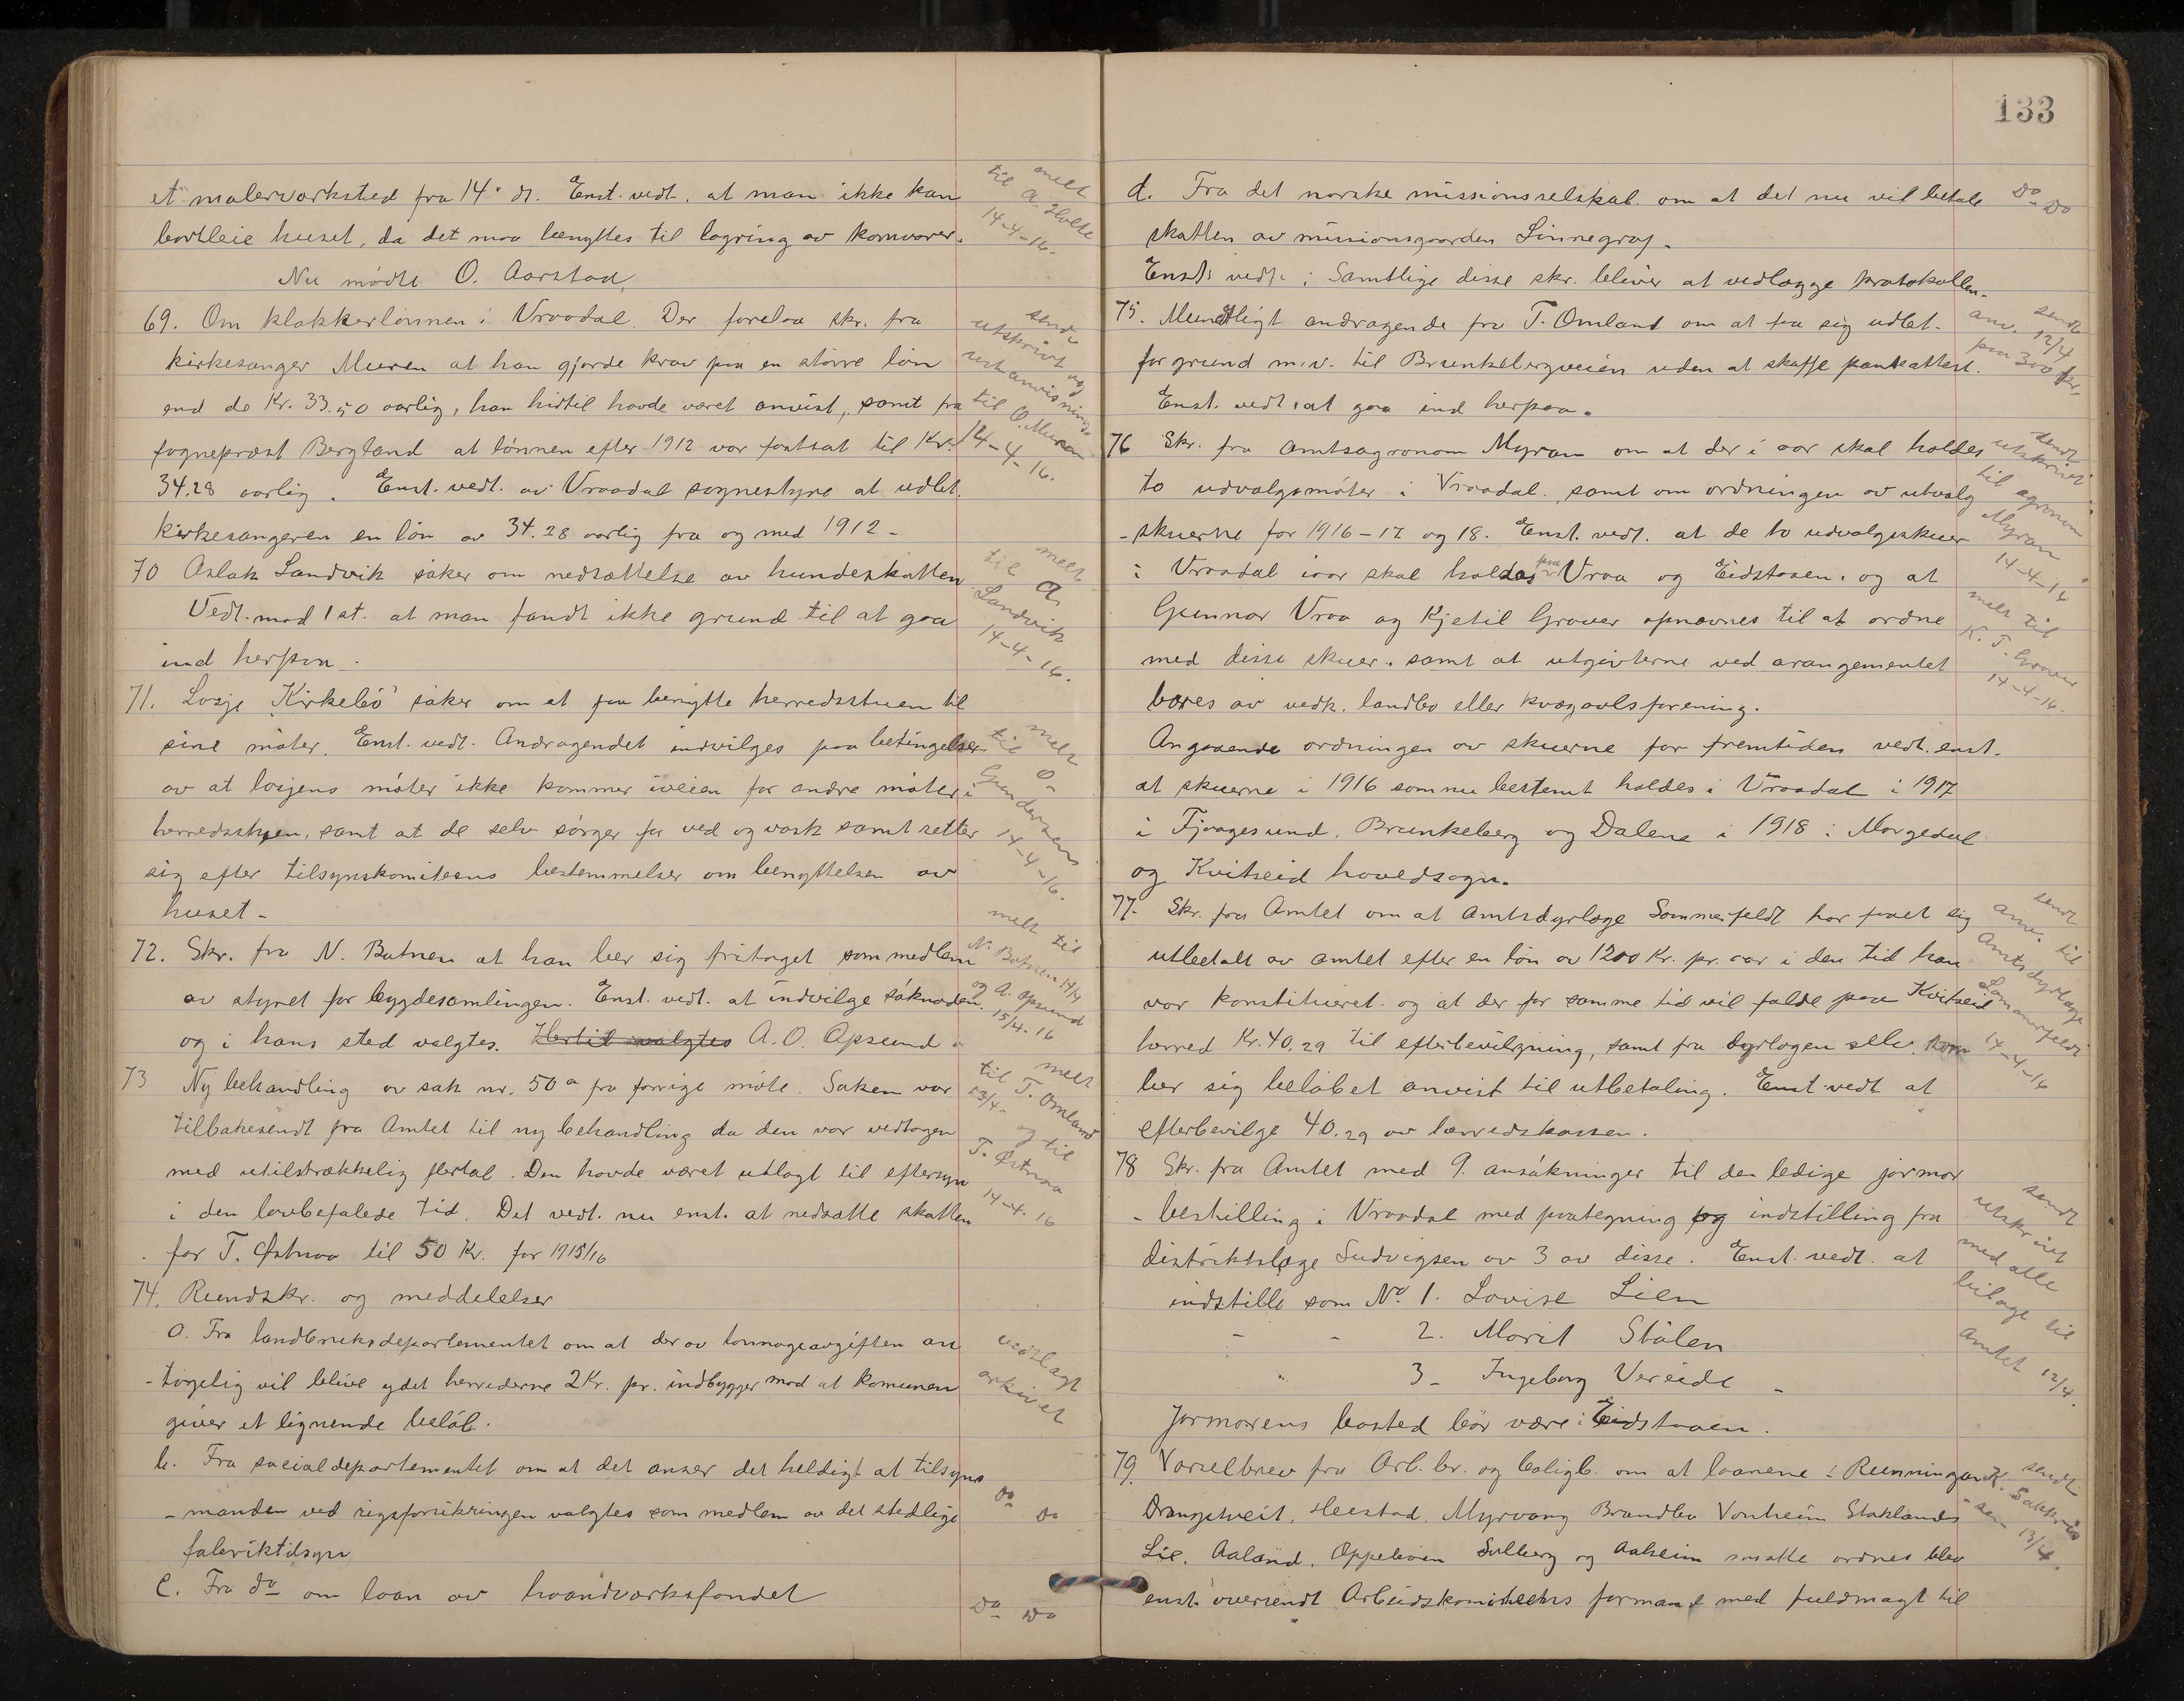 et malerverksted fra 14de ds. Enst. vedt. at man ikke kan
bortleie huset, da det maa benyttes til lagring av kornvarer.
Nu mödte O. Aarstad.
69. Om klokkerlönnen i Vraadal. Der forelaa skr. fra
kirkesanger Muren at han gjorde krav paa en större lön
end de Kr. 33.50 aarlig, han hidtil havde været anvist, samt fra
sogneprest Bergland at lönnen efter 1912 var fastsat til Kr.
34.28 aarlig. Enst. vedt. av Vraadal sognestyre at udbet.
kirkesangeren en lön av 34.28 aarlig fra og med 1912 -
70 Aslak Sandvik söker om nedsættelse av hundeskatten
Vedt. mod 1 st. at man fandt ikke grund til at gaa
ind herpaa.
71. Losje "Kirkebö" söker om at faa benytte herredsstuen til
sine möter. Enst. vedt. Andragendet indvilges paa betingelse
av at losjens möter ikke kommer iveien for andre möter i
herredsstuen, samt at de selv sörger for ved og vask samt retter
sig efter tilsynskomiteens bestemmelser om benyttelsen av
huset -
72. Skr. fra N. Batnen at han ber sig fritaget som medlem
av styret for bygdesamlingen. Enst. vedt. at indvilge söknaden.
og i hans sted valgtes. Hertil valgtes A. O. Opsund.
73 Ny behandling av sak nr. 50 a fra forrige möte. Saken var
tilbakesendt fra Amtet til ny behandling da den var vedtagen
med utilstrækkelig flertal. Den havde været utlagt til eftersyn
i den lovbefalede tid. Det vedt. nu enst. at nedsætte skatten
for T. Östraa til 50 Kr. for 1915/16
74. Rundskr. og meddelelser
a. Fra landbruksdepartementet om at der av tonnageavgiften an
-tagelig vil blive ydet herrederne 2 Kr. pr. indbygger mod at komunen
giver et lignende belöb.
b. Fra socialdepartementet om at det anser det heldigt at tilsyns
- manden ved rigsforsikringen valgtes som medlem av det stedlige
fabriktilsyn
c. Fra do om loan av haandverksfondet
melt
til A. Holte
14-4-16.
sendt
utskrivt og
restanvisning
til O. Muren
14-4-16.
melt
til A.
Sandvik
14-4-16.
melt
til O.
Gundersen
14-4-16.
melt til
N. Batnen 14/4
og A. Opsund
15/4-16
melt
til T. Omland
13/4-
og til
T. Östraa
14-4-16
vedlagt
arkivet
do do
Do Do
133
d. Fra det norske missionsselskab. om at det nu vil betale
skatten av missionsgaarden Linnegrav.
Enst. vedt.: Samtlige disse skr. bliver at vedlægge protokollen.
75. Mundtligt andragende fra T. Omland om at faa sig udbet.
for grund m.v. til Brunkebergveien uden at skaffe panteattest.
Enst. vedt. at gaa ind herpaa.
76 Skr. fra amtsagronom Myran om at der i aar skal holdes
to udvalgsmöter i Vraadal, samt om ordningen av utvalg
-skuerne for 1916-17 og 18. Enst. vedt. at de to udvalgsskuer
i Vraadal iaar skal holdes paa Vraa og Eidstaaen. og at
Gunnar Vraa og Kjetil Graver opnævnes til at ordne
med disse skuer. samt at utgivterne ved arangementet
bæres av vedk. landbo eller kvægavlsforening.
Angaaende ordningen av skuerne for fremtiden vedt. enst.
at skuerne i 1916 som nu bestemt holdes i Vraadal i 1917
i Fjaagesund, Brunkeberg og Dalene i 1918 i Morgedal
og Kvitseid hovedsogn.
77. Skr. fra Amtet om at Amtsdyrlæge Sommerfeldt har faaet sig
utbetalt av amtet efter en lön av 1200 Kr. pr. aar i den tid han
var konstitueret. og at der for samme tid vil falde paa Kvitseid
herred Kr. 40.29 til efterbevilgning, samt fra dyrlægen selv som
ber sig belöbet anvist til utbetaling. Enst. vedt. at
efterbevilge 40.29 av herredskassen.
78 Skr. fra Amtet med 9. ansökninger til den ledige jormor
- bestilling i Vraadal med paategning og indstilling fra
distriktslæge Ludvigsen av 3 av disse. Enst. vedt. at
indstille som No. 1. Lovise Lien
- - 2. Marit Stålen
" 3 - Ingeborg Vereide -
Jormorens bosted bör være i Eidstaaen.
79. Varselbrev fra Arb. br. og boligb. om at laanene i Runningen
Drangstveit, Heestad, Myrvang Brandbu Vonheim Staklands
Lie, Aaland, Oppeboen Solberg og Aaheim maatte ordnes blev
enst. oversendt Arbeidskomiteens formand med fuldmagt til
Do Do
sendt
anv. 12/4
paa 300 kr.
sendt
utskrivt
til agronom
Myran
14-4-16
melt til
K. T. Graver
14-4-16.
sendt
anv. til
Amtsdyrlæge
Sommerfeldt
14-4-16
sendt
utskrivt
med alle
bilage til
Amtet 12/4.
sendt
K. Sakkris
- sen 13/4.